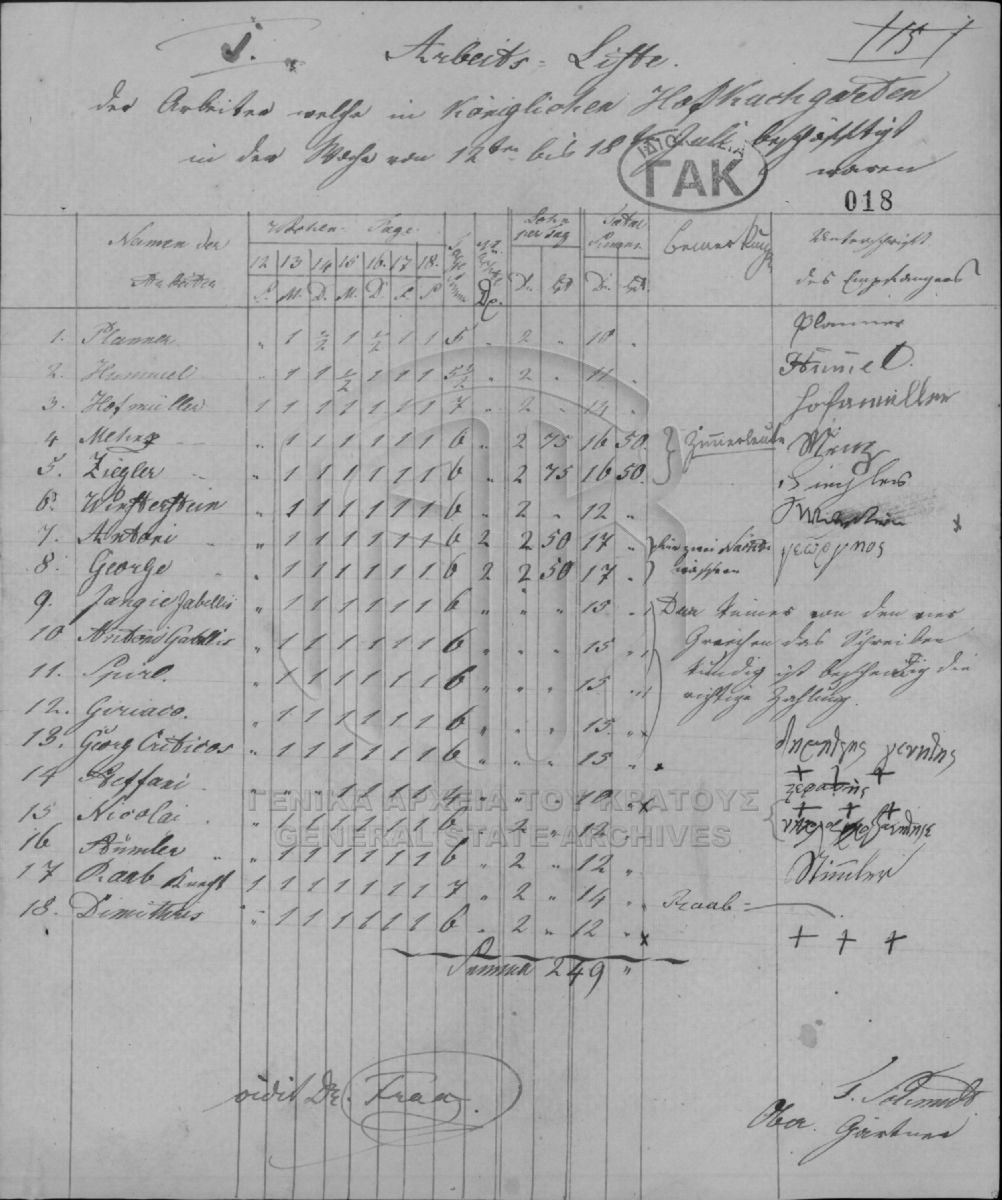 5.
115
Arbeits-Liste.
der Arbeiter welche in Königlichen Hofkuchgarten
in der Woche von 12ten bis 18 Juli beschäftigt
waren
ΓΑΚ
018
Namen der Arbeiter
Wochen-Tage
Lohn per Tag
Total
Bemerkung
Unterschrift des Empfängers
12 13 14 15 16 17 18.
S. M. D. M. D. F. S. Dr. Dr. Lpt Dr. Lpt.
1. Planner " 1 1/2 1 1/2 1 1 5 " 2 " 10 " Planner
2. Hummel " 1 1 1/2 1 1 1 5 1/2 " 2 " 11 " Hummel.
3. Hofmüller 1 1 1 1 1 1 1 7 " 2 " 14 " Hofamüller
4. " 1 1 1 1 1 1 6 " 2 75 16 50. Zimmerleute Menz
5. Ziegler " 1 1 1 1 1 1 6 " 2 75 16 50.
6. Winsterstein " 1 1 1 1 1 1 6 " 2 " 12 "
7. Antoni " 1 1 1 1 1 1 6 2 2 50 17 " für zwei Nacht γεώργηος
8. George " 1 1 1 1 1 1 6 2 2 50 17 " wachen
9. Jangie Gabellis " 1 1 1 1 1 1 6 " " " 15 " Das keines von den vier
10. Antonio Gabellis " 1 1 1 1 1 1 6 " " " 15 " Griechen das Schreiben
11. Spiro. " 1 1 1 1 1 1 6 " " " 15 " kundig ist bescheinig die
12. Giriaco. " 1 1 1 1 1 1 6 " " " 15 " richtige Zahlung.
13. Georg Criticos " 1 1 1 1 1 1 6 " " " 15 " x
14 Steffani " " " 1 1 1 1 4 " " " 10 " x + + +
15 Nicolai. " 1 1 1 1 1 1 6 " 2 " 12 " + + +
16 Stümler " 1 1 1 1 1 1 6 " 2 " 12 " Stimler
17 Raab Knecht 1 1 1 1 1 1 1 7 " 2 " 14 " Raab =
18. Dimithris " 1 1 1 1 1 1 6 " 2 " 12 " x + + +
Summa 249 "
ΓΕΝΙΚΑ ΑΡΧΕΙΑ ΤΟΥ ΚΡΑΤΟΥΣ
GENERAL STATE ARCHIVES
vidit Dr. Fraa
Schmidt
Ober Gärtner